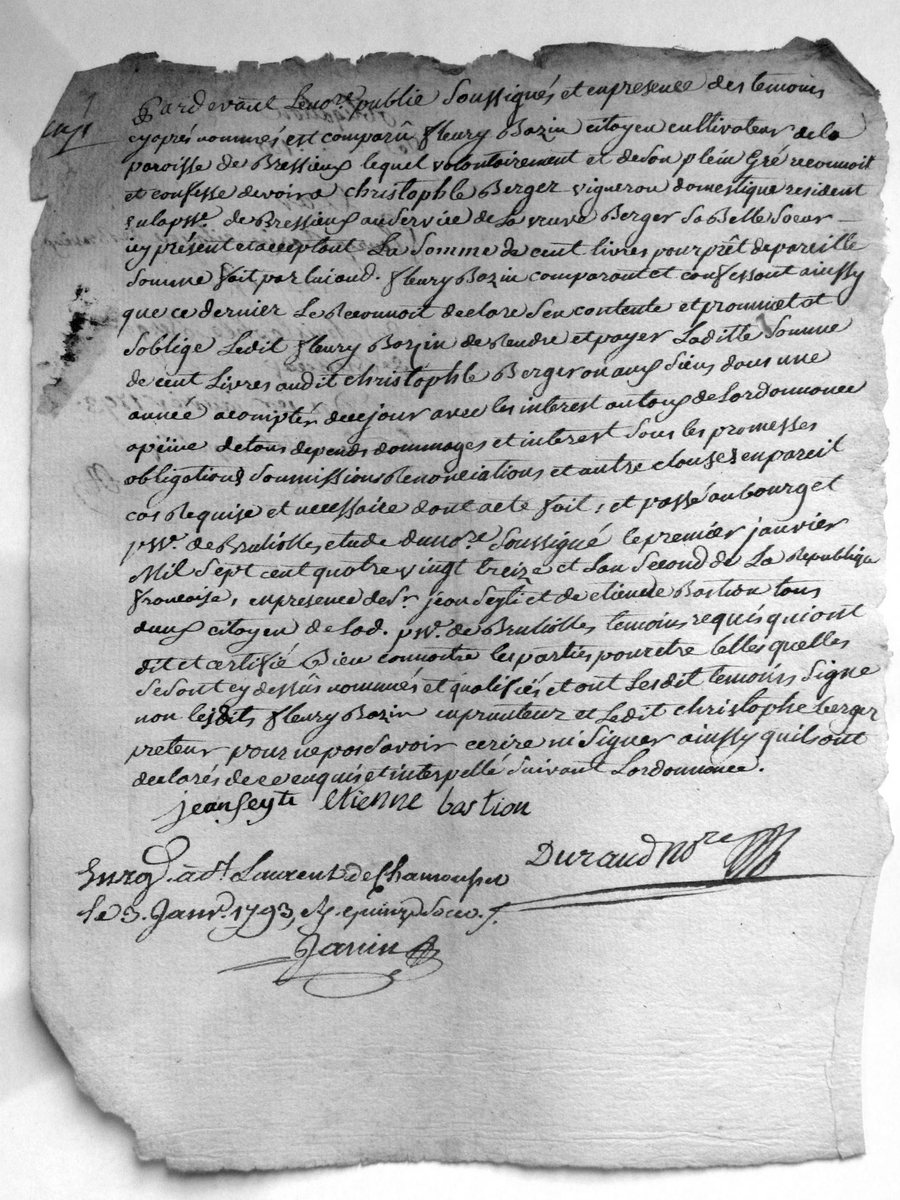 Pardevant Le no.re publie Soussignés et en presence des temoins
cy aprés nommés est comparû fleury Bazin citoyen cultivateur de la
paroisse de Bressieux lequel volontairement et de son plein Gré reconnoit
et confesse devoir a christophle Berger vigneron domestique resident
sur la p.sse de Bressieux au service de La veuve Berger Sa Belle Soeur
icy présent et acceptant La Somme de cent livres pour prêt de pareille
Somme fait par lui aud. fleury Bazin comparant et confessant ainssy
que ce dernier Le Reconnoit declare S'en contente et promet et
S'oblige Ledit fleury Bazin de Rendre et payer Laditte Somme
de cent Livres audit christophle Berger ou aux Siens dans une
année a compter de ce jour avec les interest au taux de Lordonnance
a peine de tous depends dommages et interest Sous les promesses
obligations Soumissions Renonciations et autre clauses en pareil
cas Requise et necessaire dont acte fait, et passé au bourg et
p.sse de Brulioles etude du no.re Soussigné le premier janvier
Mil Sept cent quatre vingt treize et Lan Second de La Republique
francaise, en presence de S.r jean Seyti et de etienne Bastion tous
deux citoyen de Lad. p.sse de Brulioles temoins requis qui ont
dit et certifié Bien connoitre les parties pour etre telles quelles
Se Sont cy dessûs nommés et qualifiés et ont Lesdit temoins Signe
non lesdits fleury Bazin enprunteur et Ledit christophe berger
preteur pour ne pas Savoir ecrire ni Signer ainssy quils ont
declarés de ce enquis et interpellé suivant Lordonnance.
jean Seyti etienne bastion
Durand No.re
Enrg. à S.t Laurent de Chamousset
le 3. Janv. 1793 R. quinze Sols
Janin